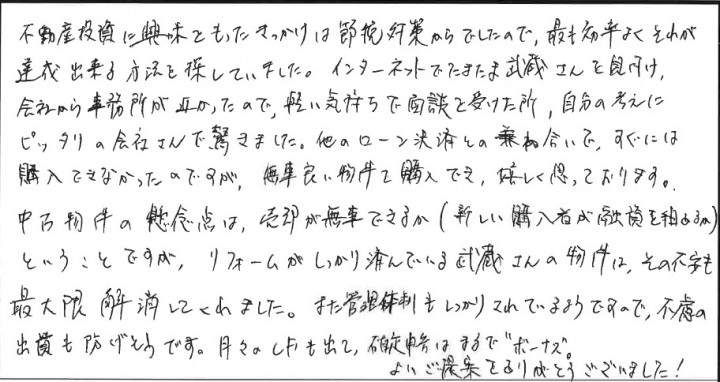 不動産投資に興味をもったきっかけは節税対策からでしたので、最も効率よくそれが
達成出来る方法を探していました。インターネットでたまたま武蔵さんを見付け、
会社から事務所が近かったので、軽い気持ちで面談を受けた所、自分の考えに
ピッタリの会社さんで驚きました。他のローン決済との兼ね合いで、すぐには
購入できなかったのですが、無事良い物件を購入でき、嬉しく思っております。
中古物件の懸念点は、売却が無事できるか(新しい購入者が融資を組めるか)
ということですが、リフォームがしっかり済んでいる武蔵さんの物件は、その不安も
最大限解消してくれました。また管理体制もしっかりされているようですので、不慮の
出費も防げそうです。月々のCFも出て、確定申告はまるで"ボーナス"。
よいご提案をありがとうございました!